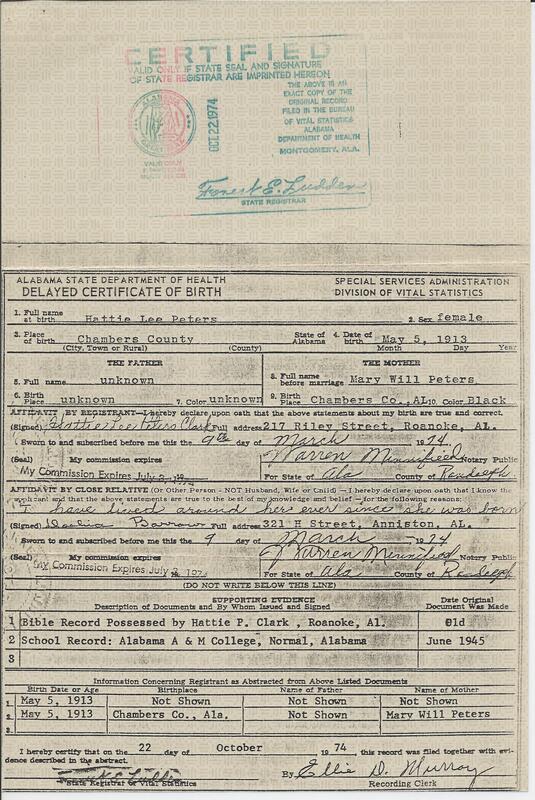 CERTIFIED
VALID ONLY IF STATE SEAL AND SIGNATURE
OF STATE REGISTRAR ARE IMPRINTED HEREON
ALABAMA
OCT 22 1974
THE ABOVE IS AN
EXACT COPY OF THE
ORIGINAL RECORD
FILED IN THE BUREAU
OF VITAL STATISTICS
ALABAMA
DEPARTMENT OF HEALTH
MONTGOMERY, ALA.
VALID ONLY
Forest E. Ludden
STATE REGISTRAR
ALABAMA STATE DEPARTMENT OF HEALTH SPECIAL SERVICES ADMINISTRATION
DELAYED CERTIFICATE OF BIRTH DIVISION OF VITAL STATISTICS
1. Full name at birth Hattie Lee Peters 2. Sex female
3. Place of birth Chambers County State of Alabama 4. Date of birth May 5, 1913
(City, Town or Rural) (County) Month Day Year
THE FATHER THE MOTHER
5. Full name unknown 8. Full name before marriage Mary Will Peters
6. Birth Place unknown 7. Color unknown 9. Birth Place Chambers Co., AL 10. Color Black
AFFIDAVIT BY REGISTRANT—I hereby declare upon oath that the above statements about my birth are true and correct.
(Signed) Hattie Lee Peters Clark Full address 217 Riley Street, Roanoke, AL.
Sworn to and subscribed before me this the 9th day of March 1974.
(Seal) My commission expires J Warren Minnifield Notary Public
My Commission Expires July For State of Ala County of Randolph
AFFIDAVIT BY CLOSE RELATIVE (Or Other Person - NOT Husband, Wife or Child) — I hereby declare upon oath that I know the
applicant and that the above statements are true to the best of my knowledge and belief - for the following reasons:
I have lived around her ever since she was born
(Signed) Barrow Full address 321 H Street, Anniston, AL.
Sworn to and subscribed before me this the 9 day of March 1974
(Seal) My commission expires J Warren Minnifield Notary Public
My Commission Expires July For State of Ala County of Randolph
(DO NOT WRITE BELOW THIS LINE)
SUPPORTING EVIDENCE Date Original
Description of Documents and By Whom Issued and Signed Document Was Made
1 Bible Record Possessed by Hattie P. Clark , Roanoke, Al. Old
2 School Record: Alabama A & M College, Normal, Alabama June 1945
3
Information Concerning Registrant as Abstracted from Above Listed Documents
Birth Date or Age Birthplace Name of Father Name of Mother
1. May 5, 1913 Not Shown Not Shown Not Shown
2. May 5, 1913 Chambers Co., Ala. Not Shown Mary Will Peters
3.
I hereby certify that on the 22 day of October 1974, this record was filed together with evi-
dence described in the abstract.
By Ellie D. Murray
State Registrar of Vital Statistics Recording Clerk